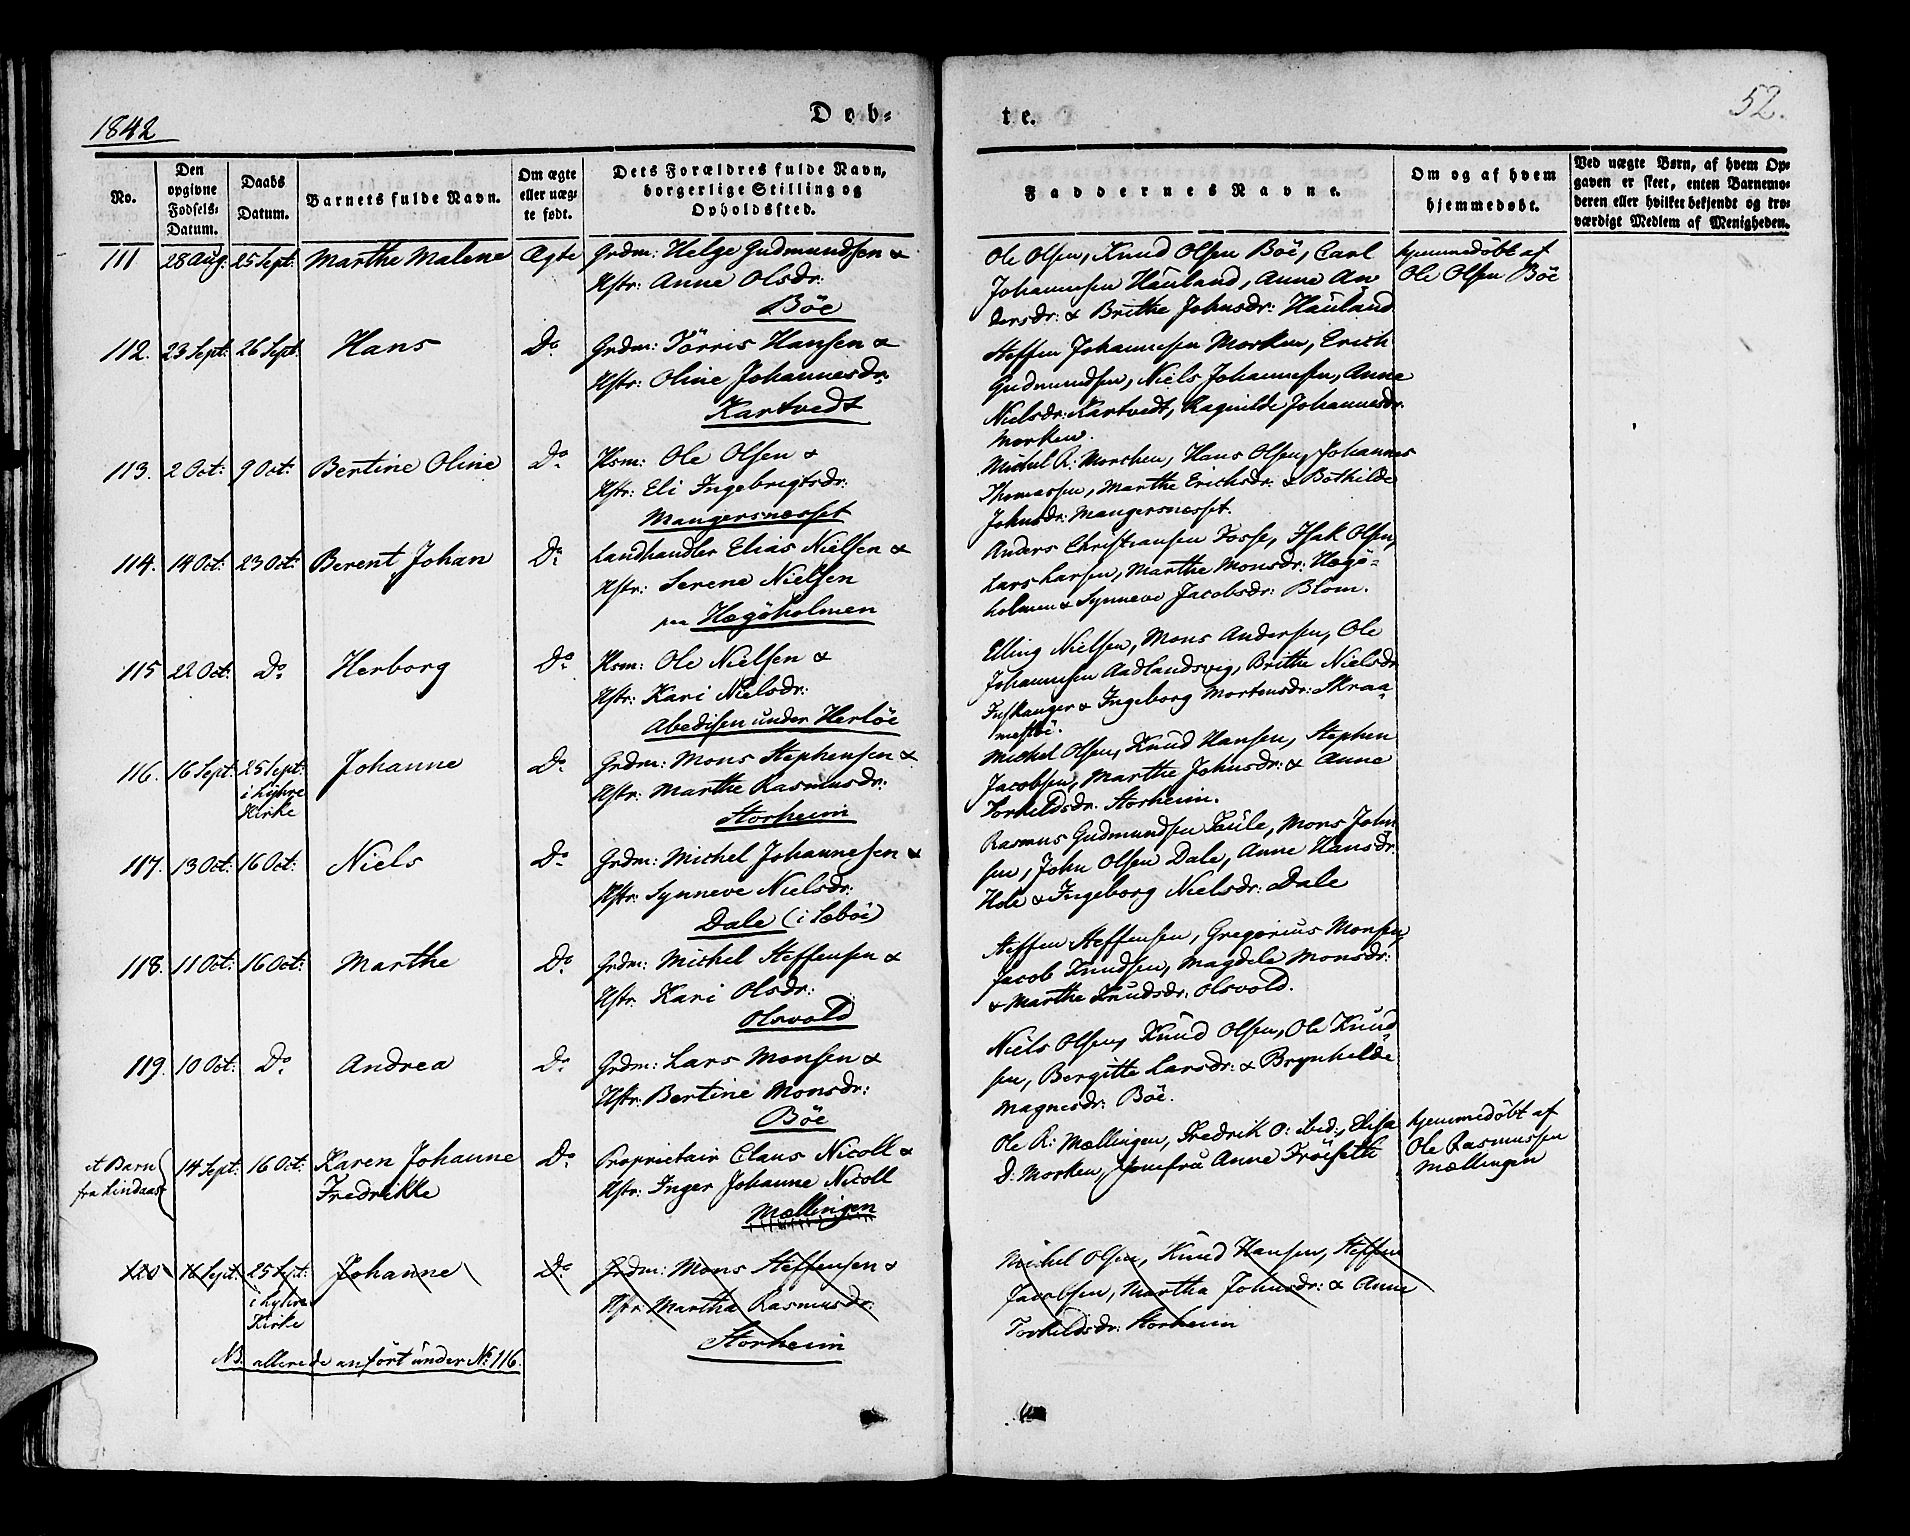 1842
Døb-
te.
52.
No.
Den opgivne Fødsels-Datum.
Daabs Datum.
Barnets fulde Navn.
Om ægte eller uægte født.
Dets Forældres fulde Navn, borgerlige Stilling og Opholdssted.
Faddernes Navne.
Om og af hvem hjemmedøbt.
Ved uægte Børn, af hvem Opgaven er skeet, enten Barnemoderen eller hvilket bekjendt og troværdigt Medlem af Menigheden.
111 28 Aug: 25 Sept: Marthe Malene Ægte Grdm: Helge Gudmundsen &
Hstr: Anne Olsdr:
Böe
Ole Olsen, Knud Olsen Böe, Carl
Johannesen Hauland, Anne An
dersdr: & Brithe Johnsdr: Hauland
hjemmedöbt af
Ole Olsen Böe
112. 23 Sept: 26 Sept: Hans Do Grdm: Törris Hansen &
Hstr: Oline Johannesdr:
Kartvedt
Steffen Johannesen Morken, Erich
Gudmundsen, Niels Johannesen, Anne
Nielsdr: Kartvedt, Ragnilde Johannesdr:
Morken.
113. 2 Oct: 9 Oct: Bertine Oline Do Hsm: Ole Olsen &
Hstr: Eli Ingebrigtsdr:
Mangersnesset
Michel R: Morchen, Hans Olsen, Johannes
Thomassen, Marthe Erichsdr: & Bothilde
Johnsdr: Mangersnesset.
114. 14 Oct: 23 Oct: Berent Johan Do Landhandler Elias Nielsen &
Hstr: Serene Nielsen
paa Hægöholmen
Anders Christiansen Fosse, Isak Olsen,
Lars Larsen, Marthe Monsdr: Hægö-
holmen & Synneve Jacobsdr: Blom.
115 22 Oct: Do Herborg Do Hsm: Ole Nielsen &
Hstr: Kari Nielsdr:
Abedisen under Herlöe
Elling Nielsen, Mons Andersen, Ole
Johannesen Aadlandsvig, Brithe Nielsdr
Tufskanger & Ingeborg Mortensdr: Skraa-
mestöe.
116. 16 Sept: 25 Sept: Johanne Do Grdm: Mons Stephensen &
i Lyhre
Kirke
Hstr: Marthe Rasmusdr:
Storheim
Michel Olsen, Knud Hansen, Stephen
Jacobsen, Marthe Johnsdr: & Anne
Torkeldsdr: Storheim.
117. 13 Oct: 16 Oct: Niels Do Grdm: Michel Johannesen &
Hstr: Synneve Nielsdr:
Dale (i Sæböe)
Rasmus Gudmundsen Kule, Mons John
sen, John Olsen Dale, Anne Hansdr:
Hole & Ingeborg Nielsdr: Dale
118. 11 Oct: 16 Oct: Marthe Do Grdm: Michel Steffensen &
Hstr: Kari Olsdr:
Olsvold
Steffen Steffensen, Gregorius Monsen,
Jacob Knudsen, Magdele Monsdr:
& Marthe Knudsdr: Olsvold.
119. 10 Oct: Do Andrea Do Grdm: Lars Monsen &
Hstr: Bertine Monsdr:
Böe
Niels Olsen, Knud Olsen, Ole Knud
sen, Bergitte Larsdr: & Brynhilde
Magnesdr: Böe.
et Barn
fra Lindaas
14 Sept: 16 Oct: Karen Johanne
Fredrikke
Do Proprietair Claus Nicoll &
Hstr: Inger Johanne Nicoll
Mællingen
Ole R: Mællingen, Fredrik O: ibid:, Elisa
D: Morken, Jomfru Anne Fröiseth
hjemmedöbt af
Ole Rasmussen
Mællingen
120 16 Sept: 25 Sept: Johanne Do Grdm: Mons Steffensen &
i Lyhre
Kirke
Hstr: Martha Rasmusdr:
Storheim
Michel Olsen, Knud Hansen, Steffen
Jacobsen, Martha Johnsdr: & Anne
Torkildsdr: Storheim
NB. allerede anfört under No 116.